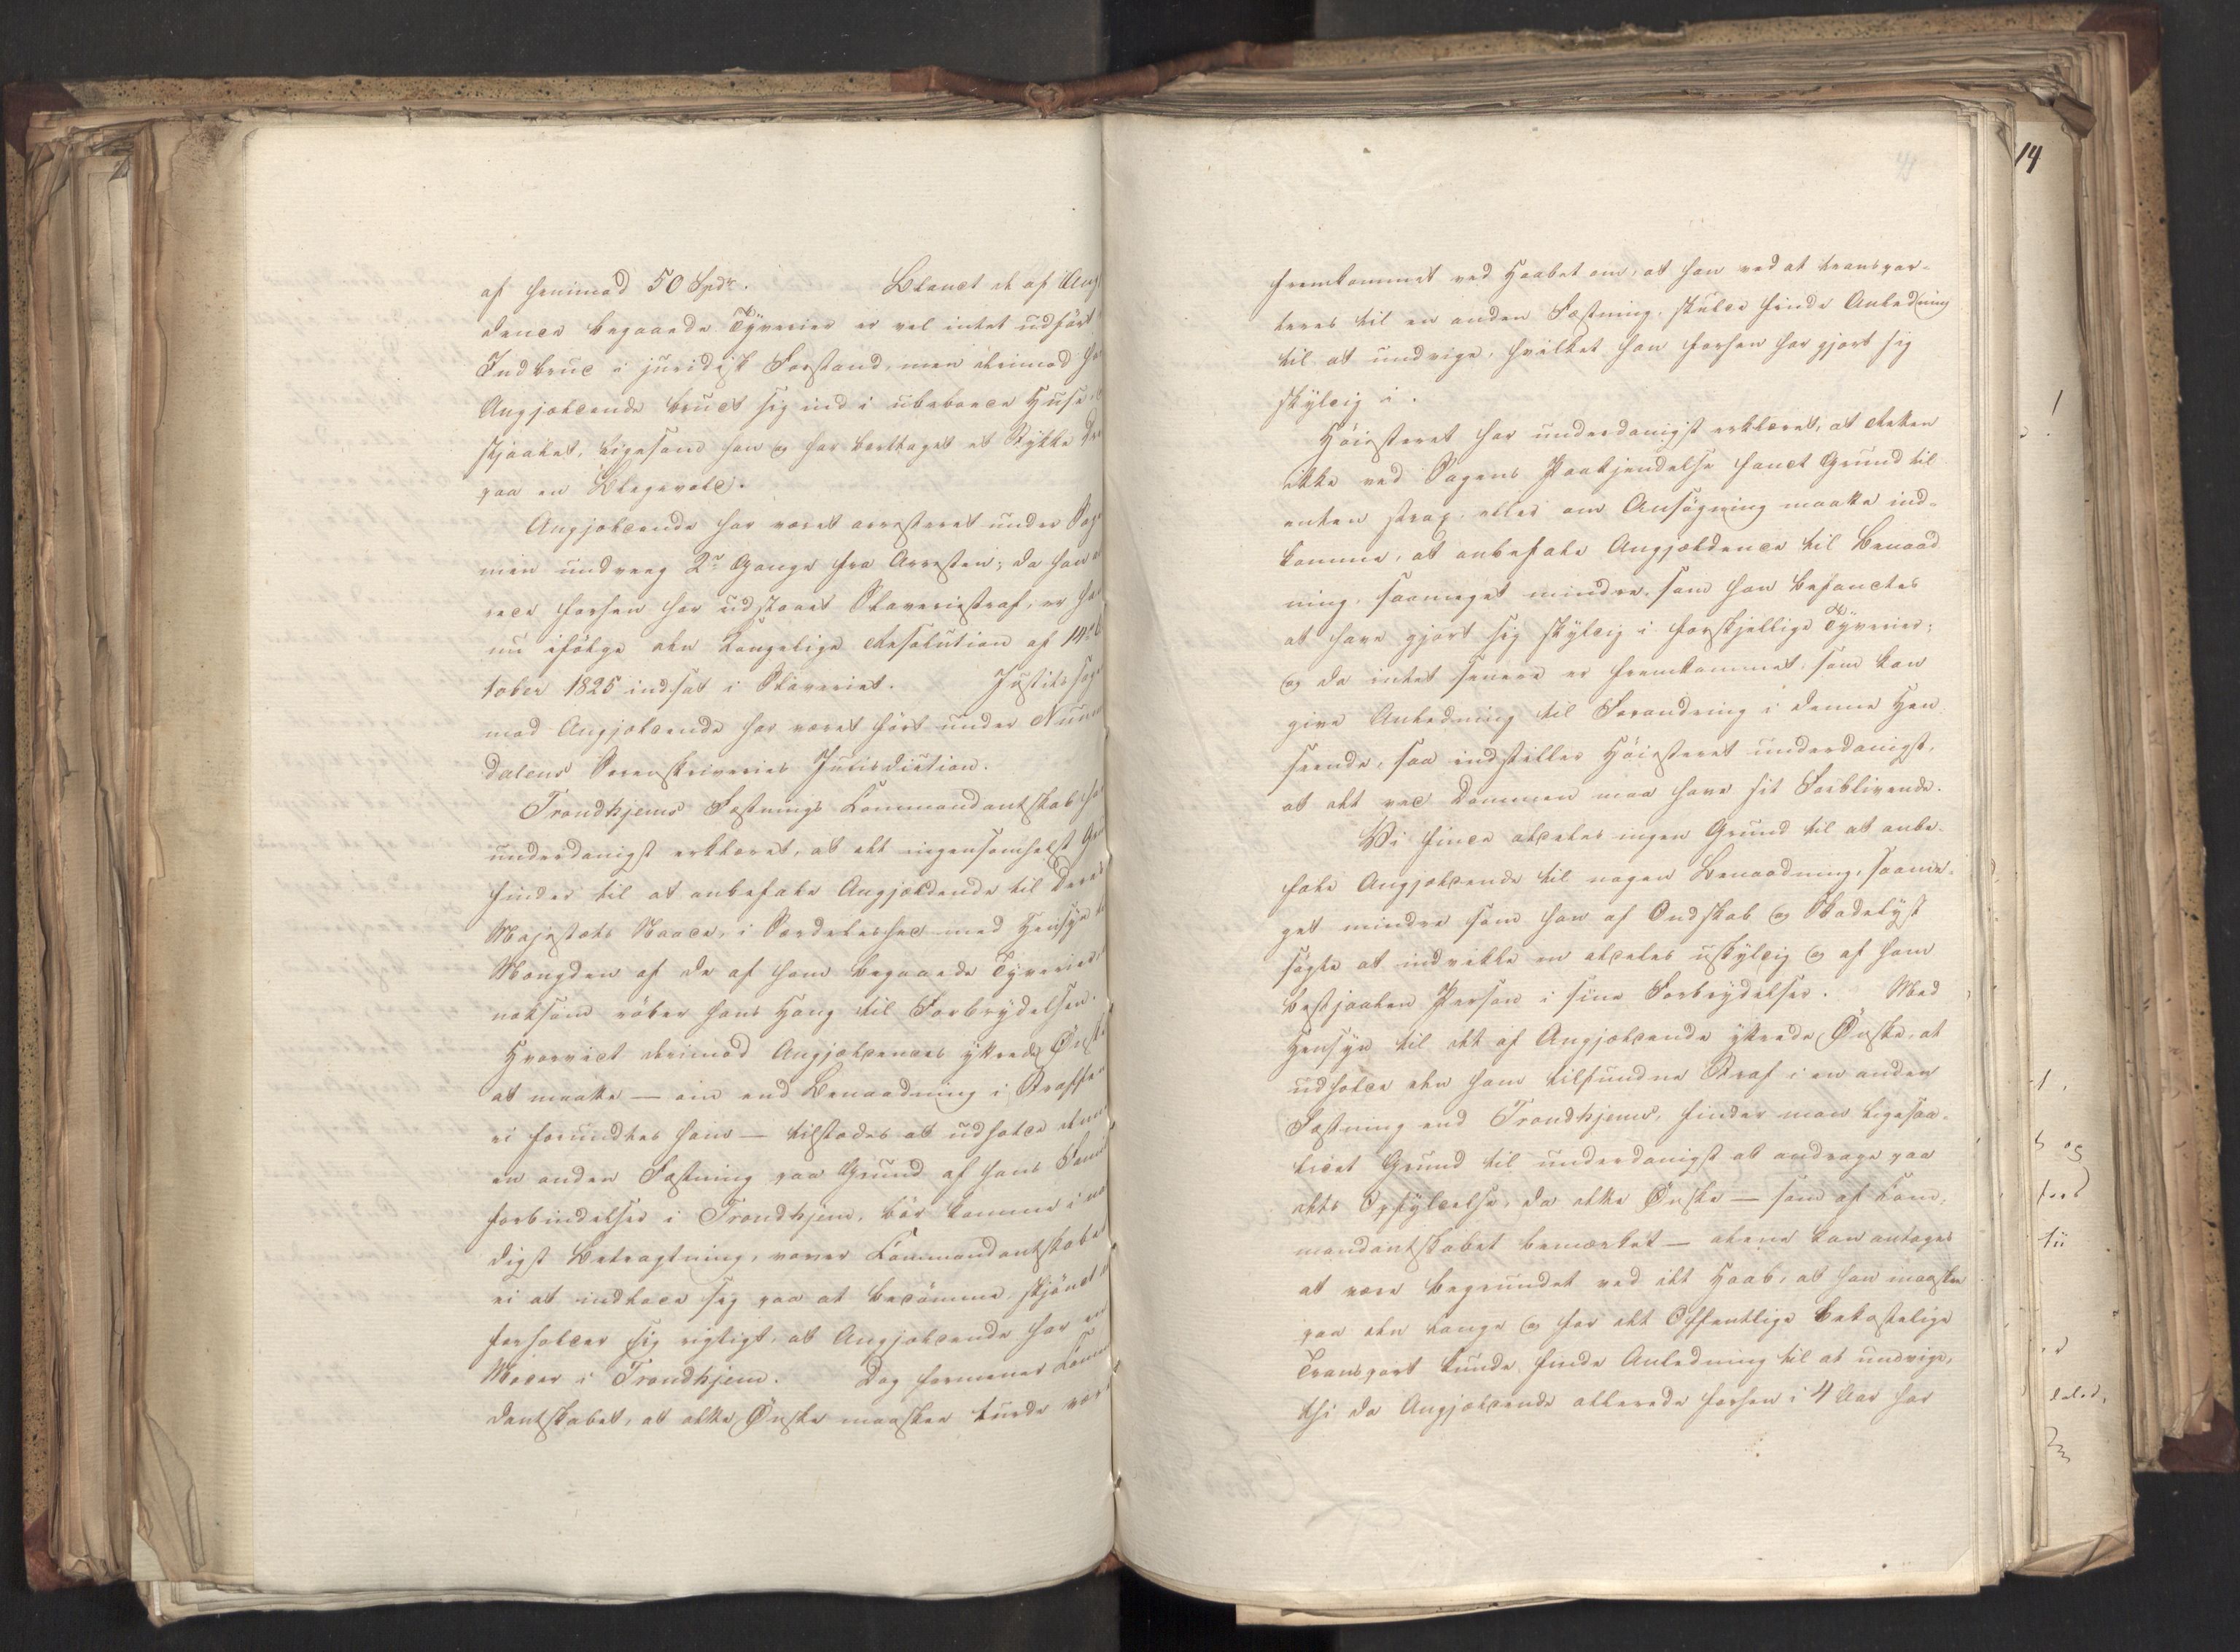 af henimod 50 Spdr. Blandt de af Ang
dende begaaede Tyverier er vel intet udført
Indbrud i juridisk Forstand, men derimod ha
Angjældende brudt sig ind i ubeboede Huse
stjaalet, ligesom han og har borttaget et Stykke
paa en Blegevold.
Angjældende har været arresteret under Sag
men undveeg 2de Gange fra Arresten; da han
rede forhen har udstaaet Slaveriestraf, er ha
nu ifølge den Kongelige Resolution af 14de
tober 1825 indsat i Slaveriet. Justitssag
mod Angjældende har været ført under Num
dalens Sorenskriveries Jurisdiction.
Trondhjems Fæstnings Commandantskab ha
underdanigst erklæret, at det ingensomhelst
finder til at anbefale Angjældende til Deres
Majestæts Naade, i Særdeleshed med Hensyn
Mængden af de af ham begaaede Tyverier
noksom røber hans Hang til Forbrydelsen.
Hvorvidt derimod Angjældendes yttrede Ønske
at maatte — om end Benaadning i Straffen
ei forundtes ham — tilstedes at udholde denne
en anden Fæstning paa Grund af hans Fami
forbindelser i Trondhjem, bør komme i
digst Betragtning, vover Commandantskabet
ei at indlade sig paa at bedømme, skjøndt
forholder sig rigtigt, at Angjældende har en
Moder i Trondhjem. Dog formener Comman
dantskabet, at dette Ønske maaskee turde vær
14
fremkommet ved Haabet om, at han ved at transpor-
teres til en anden Fæstning, skulde finde Anledning
til at undvige, hvilket han forhen har gjort sig
skyldig i.
Høiesteret har underdanigst erklæret, at Retten
ikke ved Sagens Paakjendelse fandt Grund til
enten strax, eller om Ansøgning maatte ind-
komme, at anbefale Angjældende til Benaad
ning, saameget mindre, som han befandtes
at have gjort sig skyldig i forskjellige Tyverier;
og da intet senere er fremkommet, som kan
give Anledning til Forandring i denne Hen
seende, saa indstiller Høiesteret underdanigst,
at det ved Dommen maa have sit Forblivende.
Vi finde aldeles ingen Grund til at anbe-
fale Angjældende til nogen Benaadning, saame-
get mindre som han af Ondskab og Skadelyst
søgte at indvikle en aldeles uskyldig og af ham
bestjaalen Person i sine Forbrydelser. Med
Hensyn til det af Angjældende yttrede Ønske, at
udholde den ham tilfundne Straf i en anden
Fæstning end Trondhjems, finder man ligesaa-
lidet Grund til underdanigst at andrage paa
dets Opfyldelse, da dette Ønske — som af Com-
mandantskabet bemærket — alene kan antages
at være begrundet ved det Haab, at han maaskee
paa den lange og for det Offentlige bekostelige
Transport kunde finde Anledning til at undvige,
thi da Angjældende allerede forhen i 4 Aar har